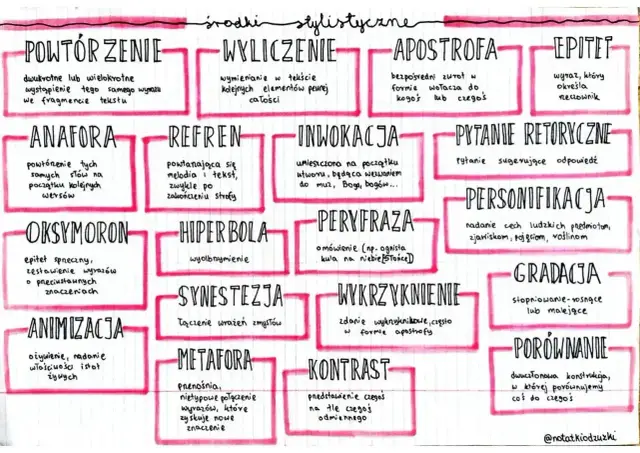 środki stylistyczne
POWTÓRZENIE
dwukrotne lub wielokrotne
wystąpienie tego samego wyrazu
we fragmencie tekstu
WYLICZENIE
wymienianie w tekście
kolejnych elementów pewnej
całości
APOSTROFA
bezpośredni zwrot w
formie wołacza do
kogoś lub czegoś
EPITET
wyraz, który
określa
rzeczownik
ANAFORA
powtórzenie tych
samych słów na
początku kolejnych
wersów
REFREN
powtarzająca się
melodia i tekst,
zwykle po
zakończeniu strofy
INWOKACJA
umieszczona na początku
utworu, będąca wezwaniem
do muz, Boga, bogów...
PYTANIE RETORYCZNE
pytanie sugerujące odpowiedź
PERSONIFIKACJA
nadanie cech ludzkich przedmiotom,
zjawiskom, pojęciom, roślinom
OKSYMORON
epitet sprzeczny,
zestawienie wyrazów
o przeciwstawnych
znaczeniach
HIPERBOLA
wyolbrzymienie
PERYFRAZA
omówienie (np. ognista
kula na niebie [SŁOŃCE])
GRADACJA
stopniowanie-rosnące
lub malejące
SYNESTEZJA
łączenie wrażeń zmysłów
WYKRZYKNIENIE
zdanie wykrzyknikowe, często
w formie apostrofy
ANIMIZACJA
ożywienie, nadanie
właściwości istot
żywych
METAFORA
przenośnia,
nietypowe połączenie
wyrazów, które
zyskuje nowe
znaczenie
KONTRAST
przedstawienie czegoś
na tle czegoś
odmiennego
PORÓWNANIE
dwuczłonowa konstrukcja,
w której porównujemy
coś do czegoś
@notatkiodzuzki